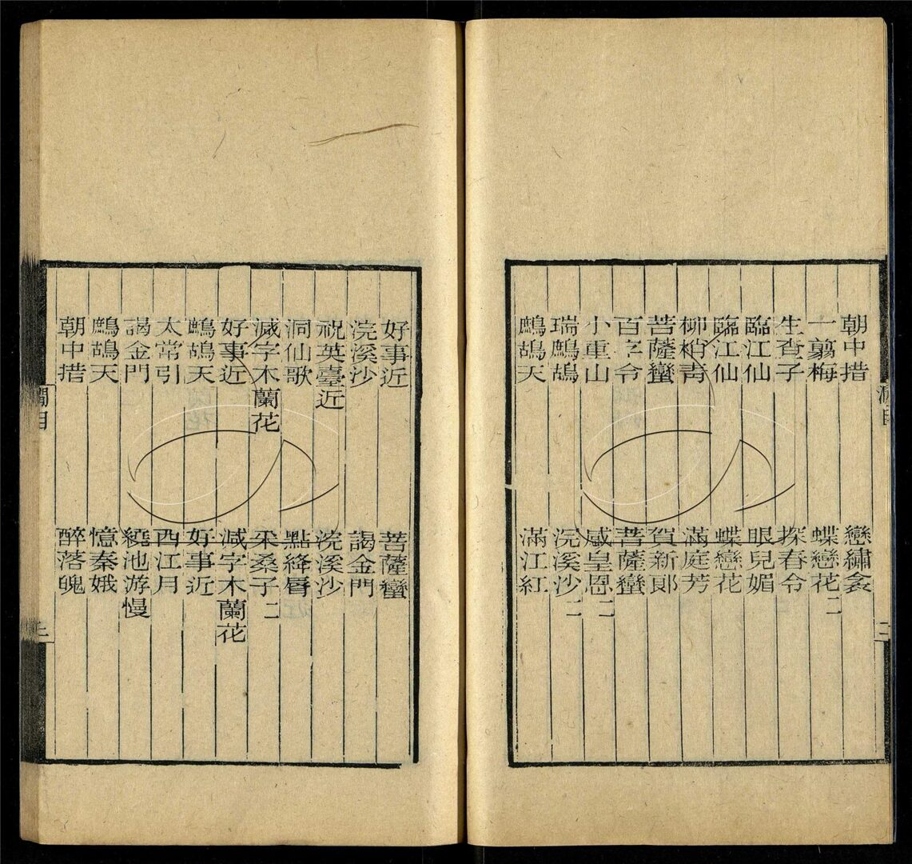 朝中措
戀繡衾
一翦梅
蝶戀花二
生查子
探春令
臨江仙
眼兒媚
臨江仙
蝶戀花
柳梢青
滿庭芳
菩薩蠻
賀新郎
百字令
菩薩蠻
小重山
感皇恩二
瑞鷓鴣
浣溪沙二
鷓鴣天
滿江紅
好事近
菩薩蠻
浣溪沙
謁金門
祝英臺近
浣溪沙
洞仙歌
點絳脣
減字木蘭花
采桑子二
好事近
減字木蘭花
鷓鴣天
好事近
太常引
西江月
謁金門
繞池游慢
鷓鴣天
憶秦娥
朝中措
醉落魄